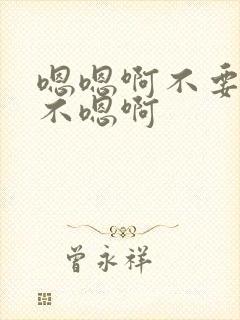 嗯嗯啊不要
不嗯啊
曾永祥